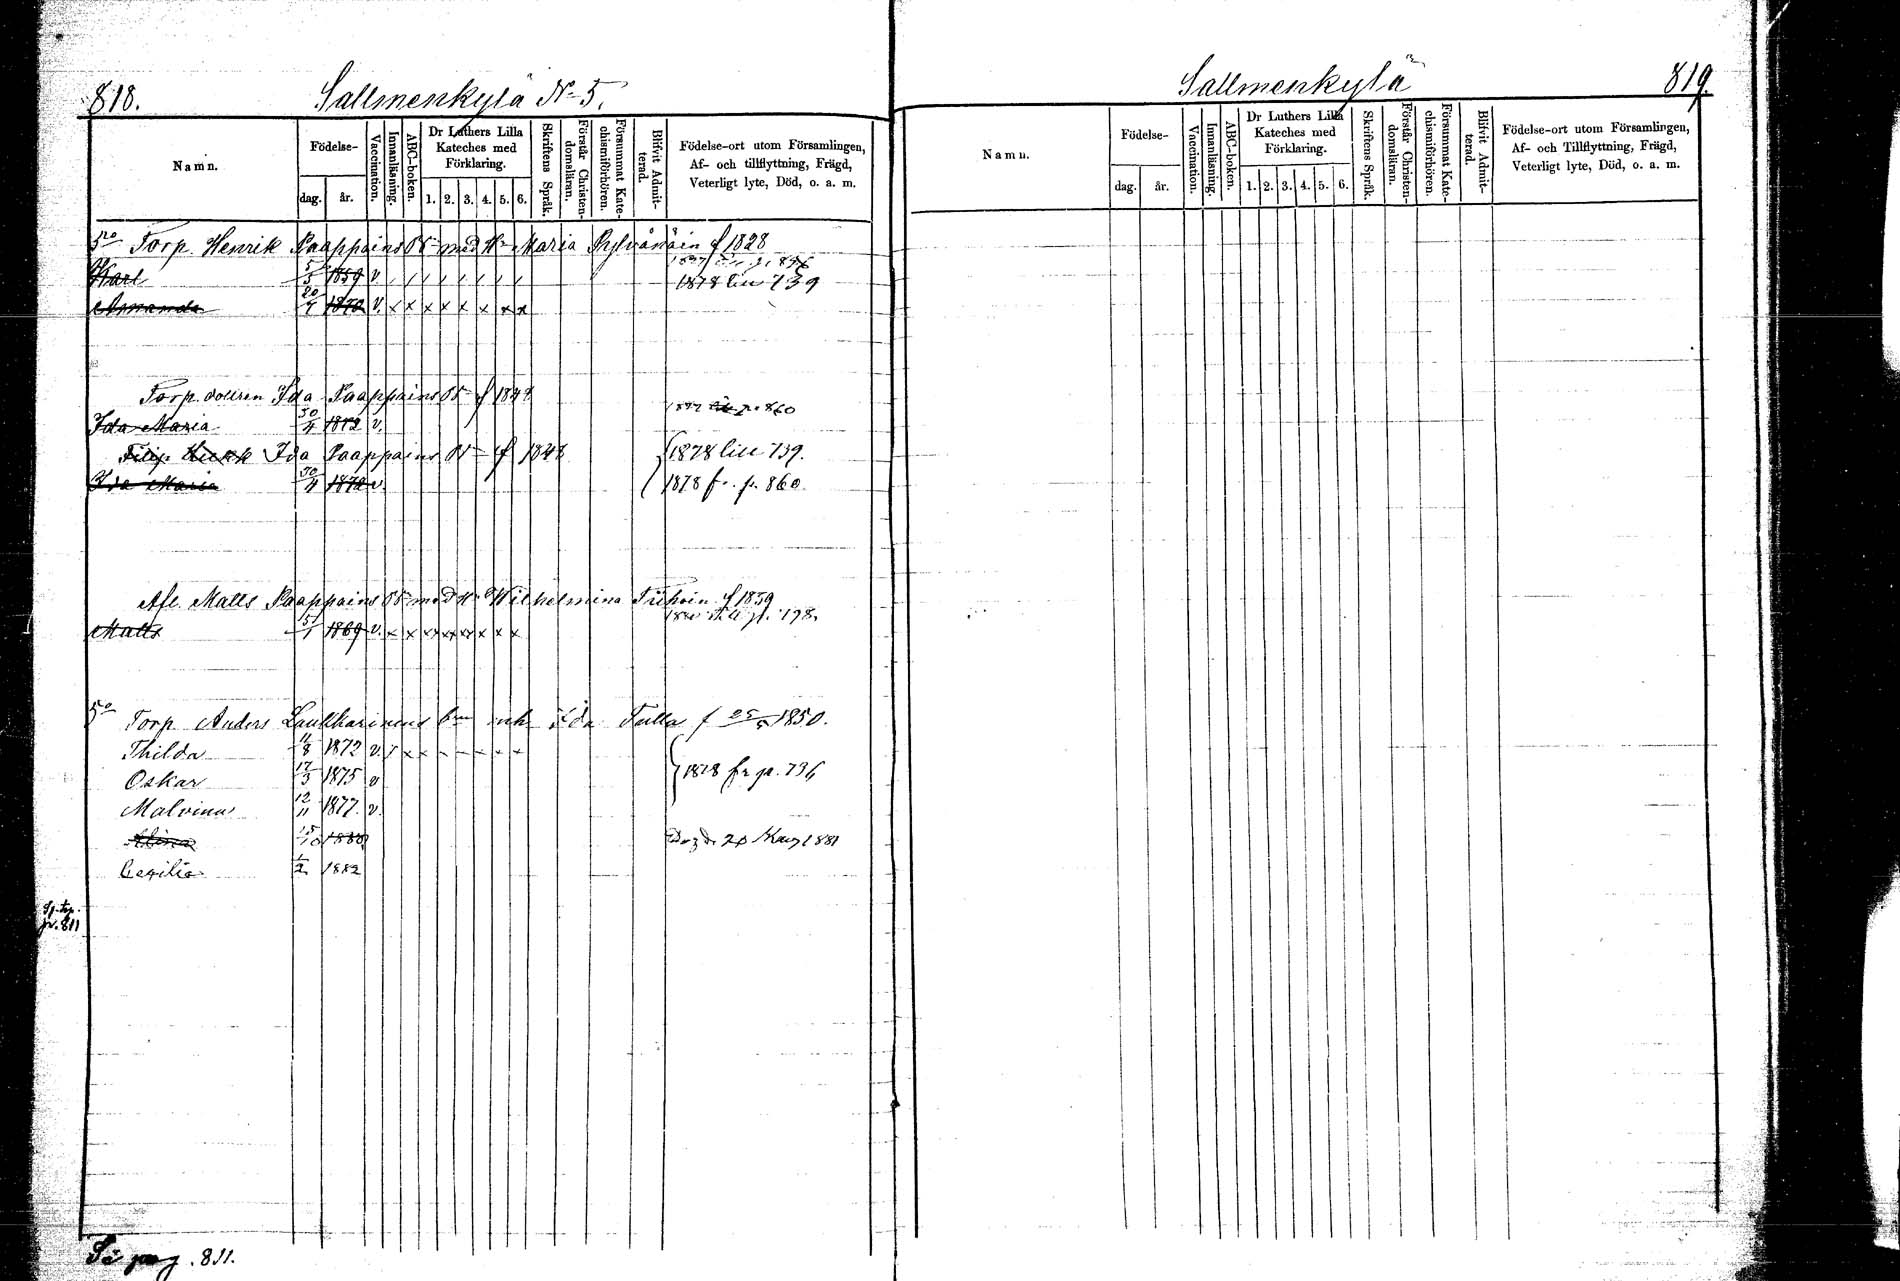 818.
Sallmenkylä No 5.
Namn.
Födelse-
dag.
år.
Vaccination.
Innanläsning.
ABC-boken.
Dr Luthers Lilla
Kateches med
Förklaring.
1. 2. 3. 4. 5. 6.
Skriftens Språk.
Förstår Christen-
domsläran.
Försummat Kate-
chismiförhören.
Blifvit Admit-
terad.
Födelse-ort utom Församlingen,
Af- och tillflyttning, Frägd,
Veterligt lyte, Död, o. a. m.
Torp. Henrik Paappains med Maria f 1828
Karl 5/5 1859 v
1878 till 739
Amanda 20/7 1870 v. x x x x x x x x
Torp. dottren Ida Paappains f 1848
Ida Maria 30/4 1872 v. p. 860
Ida Paappains f 1848 1878 till 739.
Ida Maria 30/4 1872 v. 1878 fr. p. 860.
Afl. Matts Paappains med Wilhelmina f 1839
Matts 5/1 1869 v. x x x x x x x x
Torp. Anders Ida Tulla f 25/5 1850.
Thilda 11/8 1872 v.
Oskar 17/3 1875 v 1878 fr p. 736
Malvina 12/11 1877. v.
15/10 1880 1881
Cecilia 1/2 1882
p. 811
Se pag. 811.
Sallmenkylä
819.
Namn.
Födelse-
dag.
år.
Vaccination.
Innanläsning.
ABC-boken.
Dr Luthers Lilla
Kateches med
Förklaring.
1. 2. 3. 4. 5. 6.
Skriftens Språk.
Förstår Christen-
domsläran.
Försummat Kate-
chismiförhören.
Blifvit Admit-
terad.
Födelse-ort utom Församlingen,
Af- och Tillflyttning, Frägd,
Veterligt lyte, Död, o. a. m.